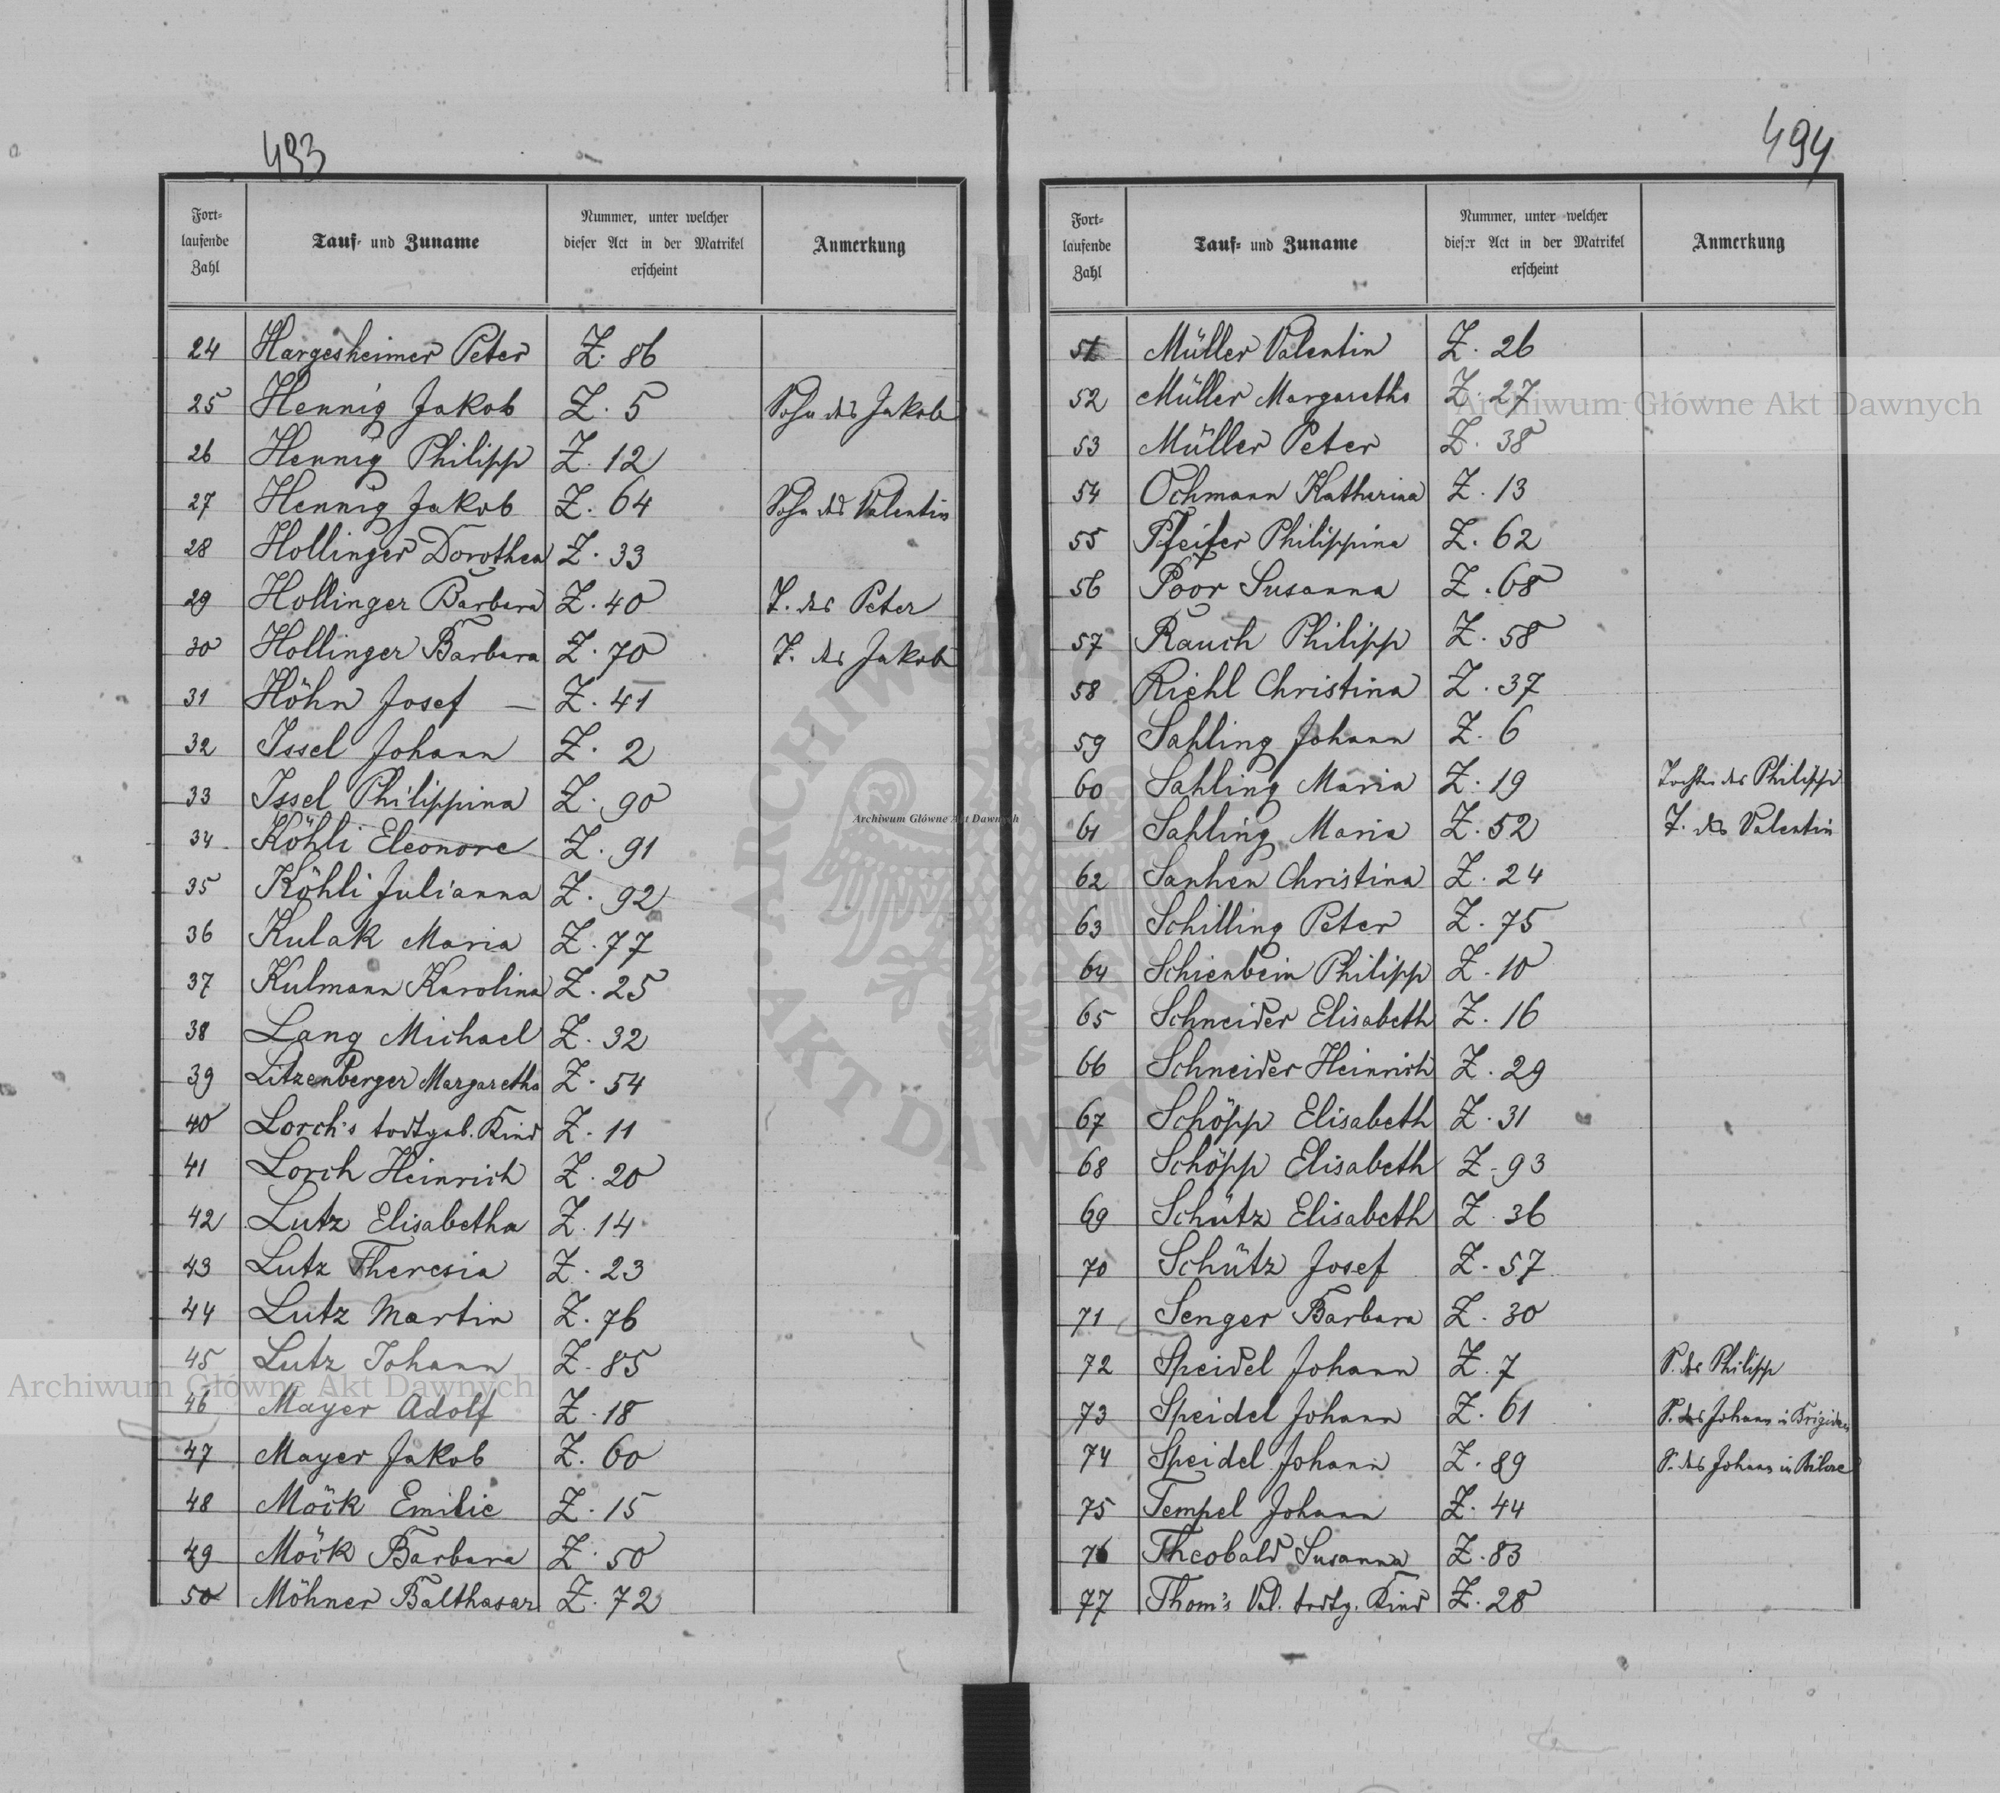 493
Fort-
laufende
Zahl
Tauf- und Zuname
Nummer, unter welcher
dieser Act in der Matrikel
erscheint
Anmerkung
24 Hargesheimer Peter Z. 86
25 Hennig Jakob Z. 5 Sohn des Jakob
26 Hennig Philipp Z. 12
27 Hennig Jakob Z. 64 Sohn des Valentin
28 Hollinger Dorothea Z. 33
29 Hollinger Barbara Z. 40 T. des Peter
30 Hollinger Barbara Z. 70 T. des Jakob
31 Höhn Josef — Z. 41
32 Issel Johann Z. 2
33 Issel Philippina Z. 90
34 Köhli Eleonore Z. 91
35 Köhli Julianna Z. 92
36 Kulak Maria Z. 77
37 Kulmann Karolina Z. 25
38 Lang Michael Z. 32
39 Litzenberger Margaretha Z. 54
40 Lorch's todtgeb. Kind Z. 11
41 Lorch Heinrich Z. 20
42 Lutz Elisabetha Z. 14
43 Lutz Theresia Z. 23
44 Lutz Martin Z. 76
45 Lutz Johann Z. 85
46 Mayer Adolf Z. 18
47 Mayer Jakob Z. 60
48 Möck Emilie Z. 15
49 Möck Barbara Z. 50
50 Möhner Balthasar Z. 72
494
Fort-
laufende
Zahl
Tauf- und Zuname
Nummer, unter welcher
dieser Act in der Matrikel
erscheint
Anmerkung
51 Müller Valentin Z. 26
52 Müller Margaretha Z. 27
53 Müller Peter Z. 38
54 Ochmann Katharina Z. 13
55 Pfeifer Philippina Z. 62
56 Poor Susanna Z. 68
57 Rauch Philipp Z. 58
58 Riehl Christina Z. 37
59 Sahling Johann Z. 6
60 Sahling Maria Z. 19 Tochter des Philipp
61 Sahling Maria Z. 52 T. des Valentin
62 Sanhen Christina Z. 24
63 Schilling Peter Z. 75
64 Schienbein Philipp Z. 10
65 Schneider Elisabeth Z. 16
66 Schneider Heinrich Z. 29
67 Schöpp Elisabeth Z. 31
68 Schöpp Elisabeth Z. 93
69 Schütz Elisabeth Z. 36
70 Schütz Josef Z. 57
71 Senger Barbara Z. 30
72 Speidel Johann Z. 7 S. des Philipp
73 Speidel Johann Z. 61 S. des Johann in Brigidau
74 Speidel Johann Z. 89 S. des Johann in Bilcze
75 Tempel Johann Z. 44
76 Theobald Susanna Z. 83
77 Thom's Val. todtg. Kind Z. 28
Archiwum Główne Akt Dawnych
Archiwum Główne Akt Dawnych
Archiwum Główne Akt Dawnych